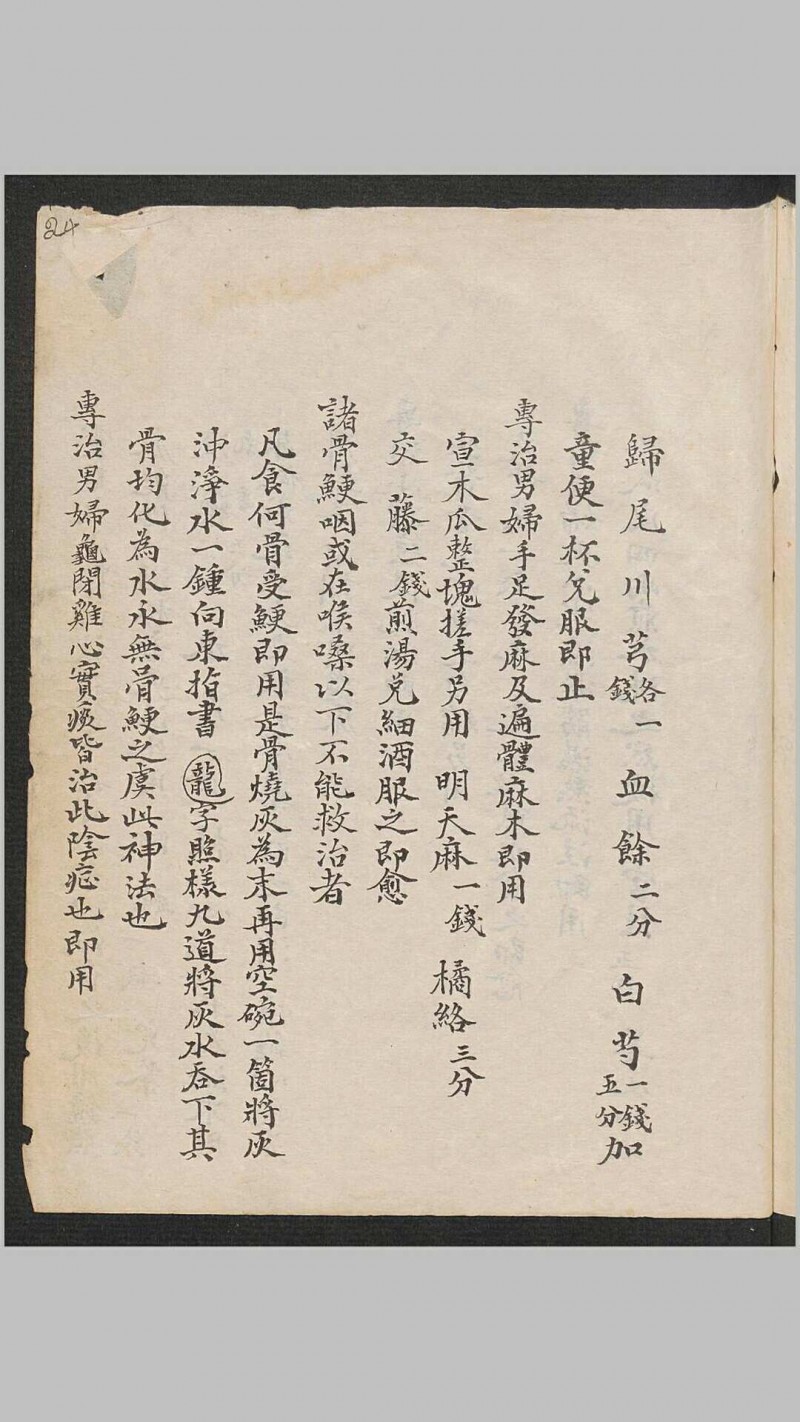 24
歸尾 川芎各一錢 血餘二分 白芍一錢五分 加
童便一杯兌服即止
專治男婦手足發麻及遍體麻木即用
宣木瓜整塊搓手另用 明天麻一錢 橘絡三分
交藤二錢煎湯兌細酒服之即愈
諸骨鯁咽或在喉嗓以下不能救治者
凡食何骨受鯁即用是骨燒灰為末再用空碗一箇將灰
沖淨水一鍾向東指書龍字照樣九道將灰水吞下其
骨均化為水永無骨鯁之虞此神法也
專治男婦龜閉雞心實痰皆治此陰症也即用